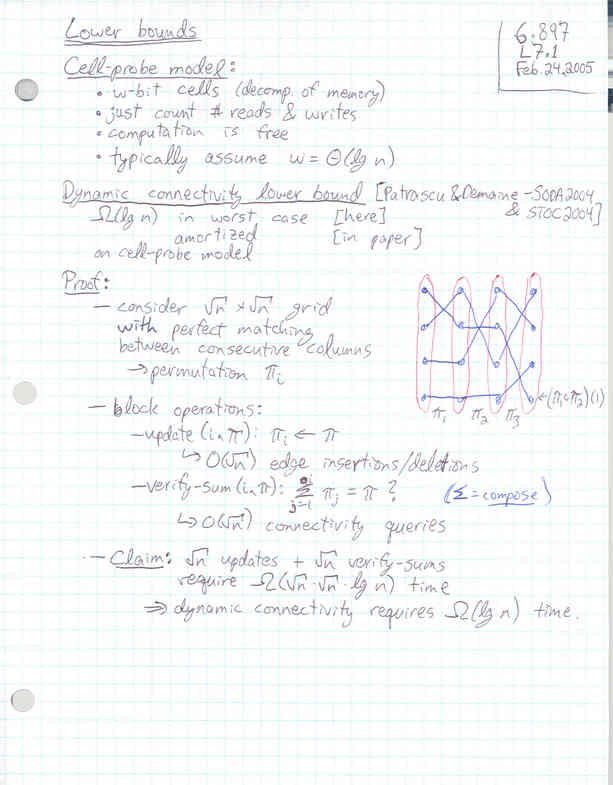 Lower bounds
6.897
L7.1
Feb. 24, 2005
Cell-probe model:
• w-bit cells (decomp. of memory)
• just count # reads & writes
• computation is free
• typically assume w = Θ(lg n)
Dynamic connectivity lower bound [Patrascu & Demaine - SODA 2004
& STOC 2004]
Ω(lg n) in worst case [here]
amortized [in paper]
on cell-probe model
Proof:
— consider √n × √n grid
with perfect matching
between consecutive columns
→ permutation πᵢ
π₁ π₂ π₃
— block operations:
— update (i, π): πᵢ ← π
↳ O(√n) edge insertions/deletions
— verify-sum (i, π): Σ πⱼ = π ? (Σ = compose)
j=1
↳ O(√n) connectivity queries
— Claim: √n updates + √n verify-sums
require Ω(√n · √n · lg n) time
⇒ dynamic connectivity requires Ω(lg n) time.